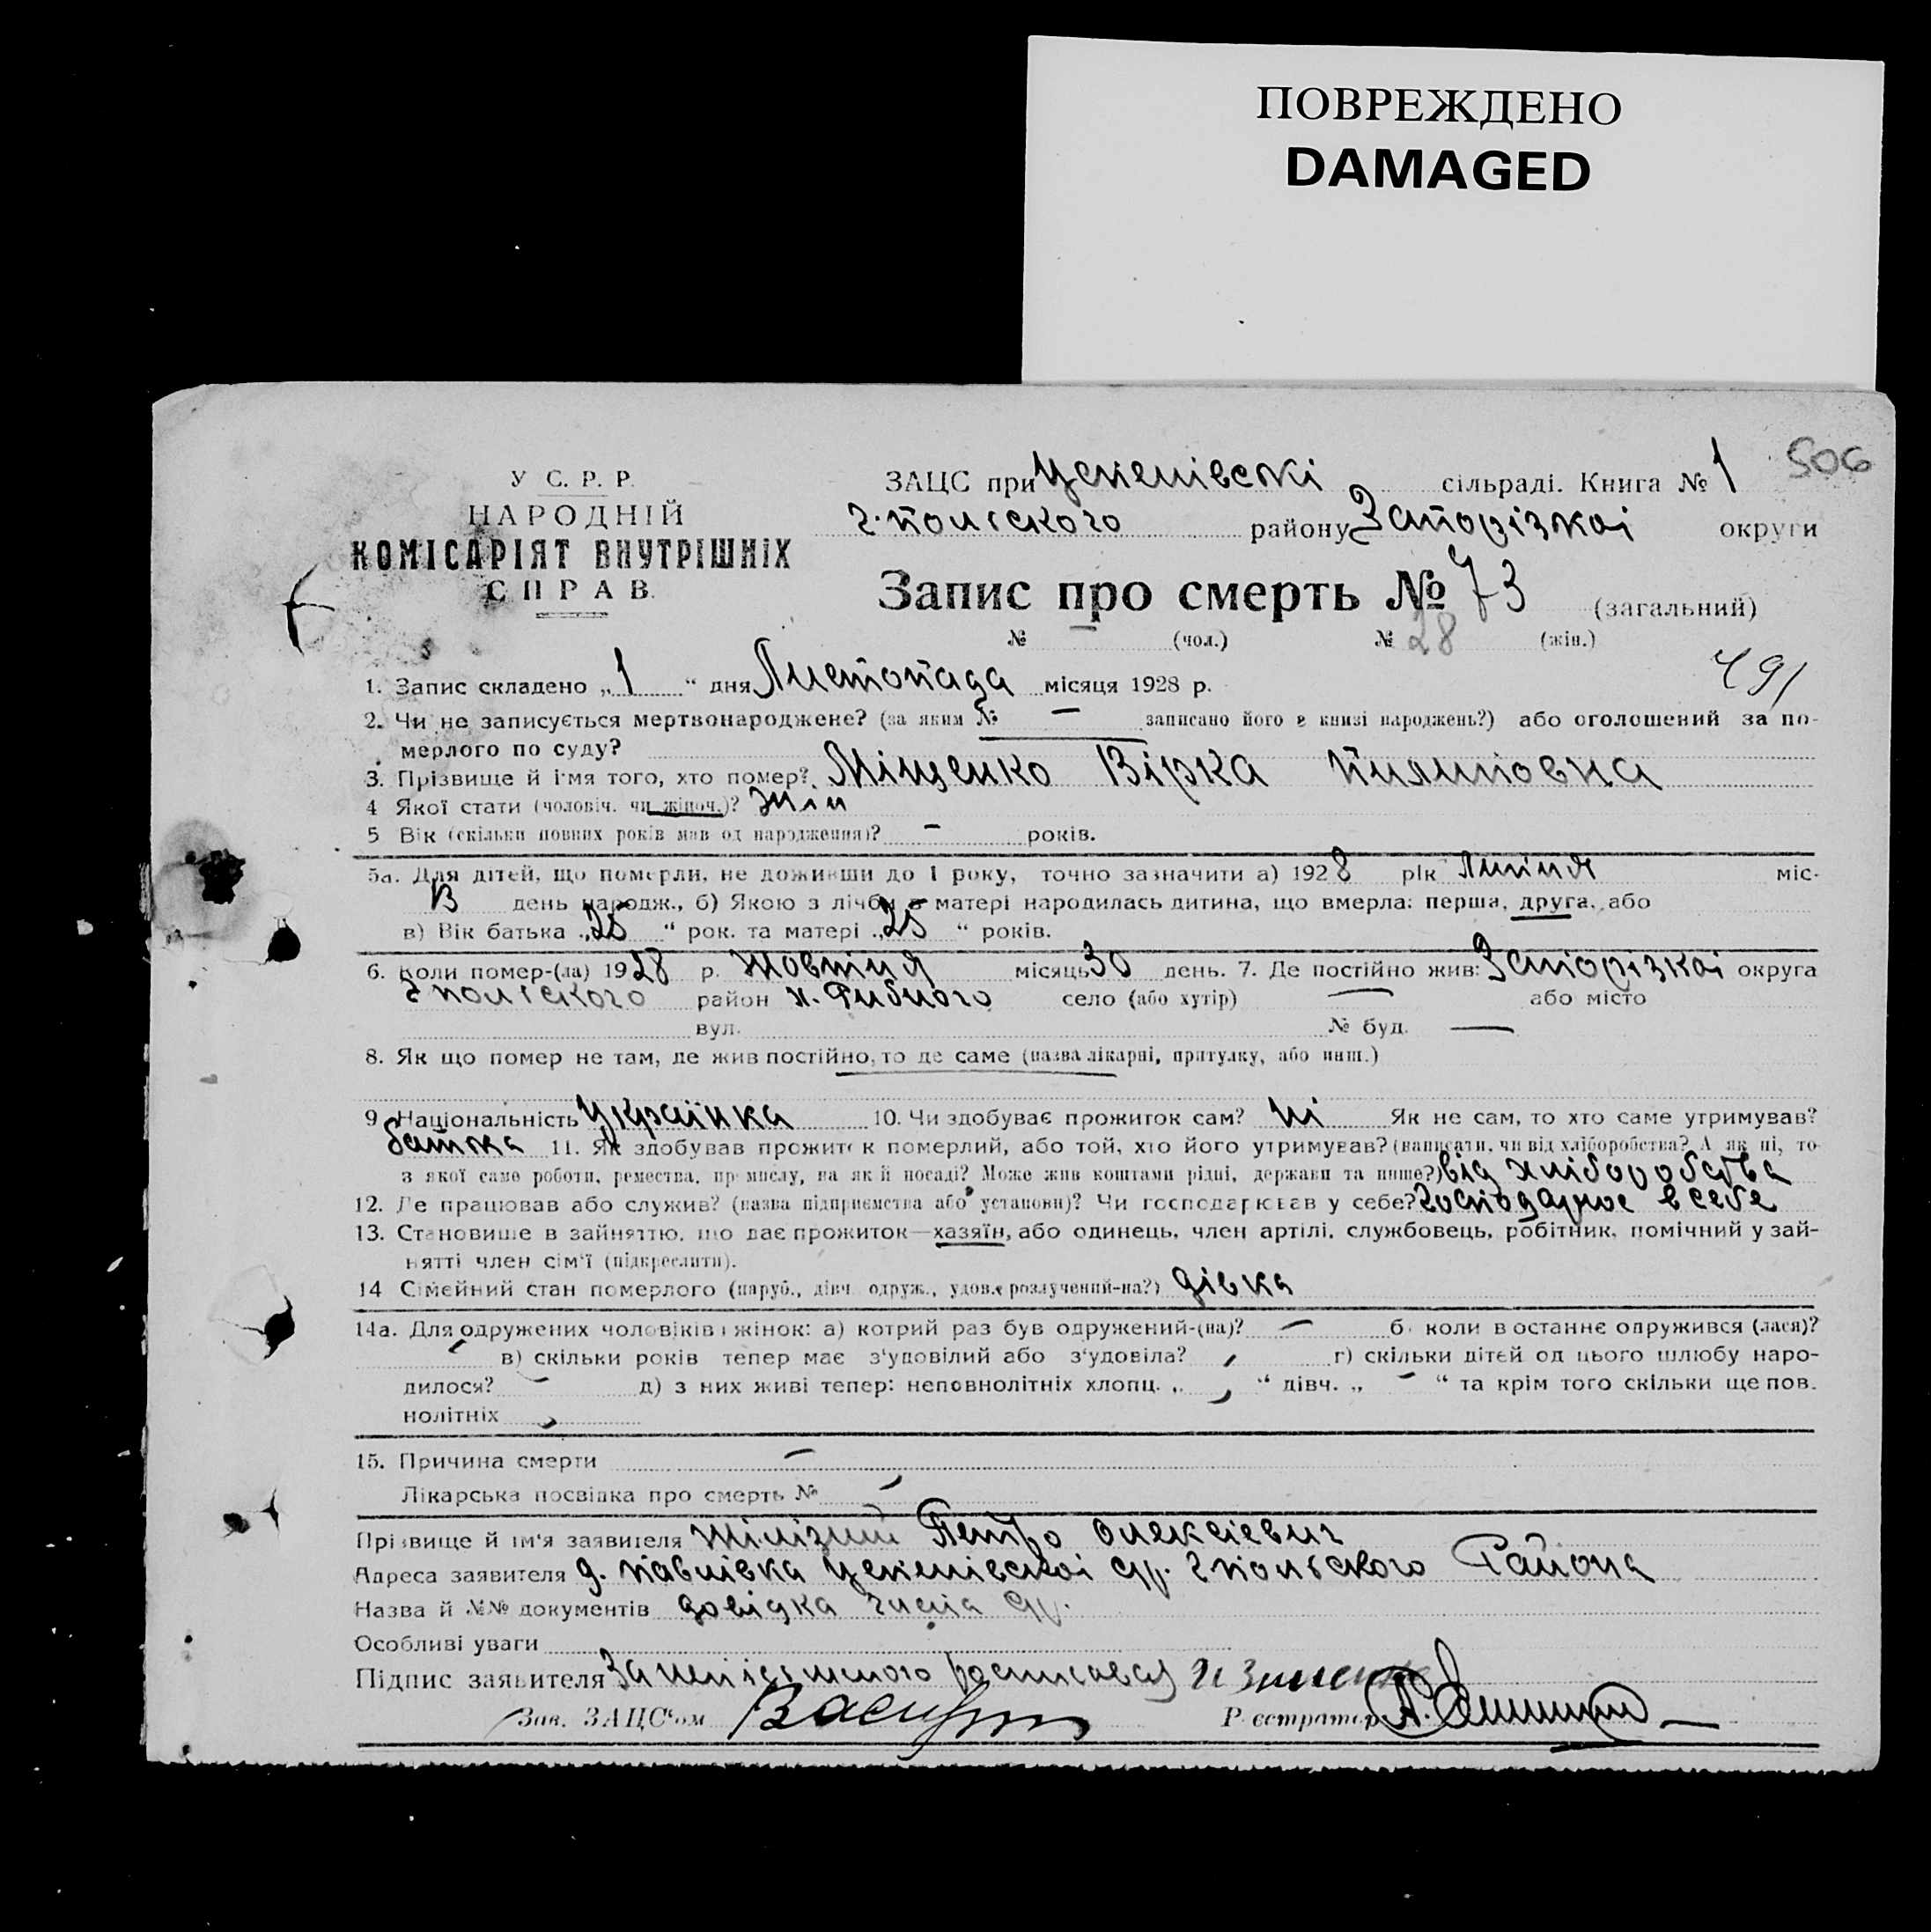 ПОВРЕЖДЕНО
DAMAGED
У С. Р. Р.
НАРОДНІЙ
КОМІСАРІЯТ ВНУТРІШНІХ
СПРАВ.
ЗАЦС при Успенівскі сільраді. Книга № 1 506
г.польского району Запорізкоі округи
Запис про смерть № 73 (загальний)
№ — (чол.) № 28 (жін.)
491
1. Запис складено „ 1 “ дня Листопада місяця 1928 р.
2. Чи не записується мертвонароджене? (за яким № — записано його в книзі народжень?) або оголошений за по-
мерлого по суду?
3. Прізвище й ім'я того, хто помер? Міщенко Вірка Пилиповна
4 Якої стати (чоловіч. чи жіноч.)? жін
5 Вік (скільки повних років мав од народження)? — років.
5а. Для дітей, що померли, не доживши до 1 року, точно зазначити а) 1928 рік Липня міс-
13 день народж., б) Якою з лічби в матері народилась дитина, що вмерла: перша, друга, або
в) Вік батька „ 25 “ рок. та матері „ 25 “ років.
6. Коли помер-(ла) 1928 р. Жовтня місяць 30 день. 7. Де постійно жив: Запорізкоі округа
г польського район х. село (або хутір) — або місто
вул. № буд. —
8. Як що помер не там, де жив постійно, то де саме (назва лікарні, притулку, або инш.)
9 Національність Українка 10. Чи здобуває прожиток сам? ні Як не сам, то хто саме утримував?
батька 11. Як здобував прожиток померлий, або той, хто його утримував? (написати, чи від хліборобства? А як ні, то
з якої саме роботи, ремества, промислу, на якій посаді? Може жив коштами рідні, держави та инше?) від хліборобства
12. Де працював або служив? (назва підприємства або установи)? Чи господарював у себе? господарює в себе
13. Становище в зайняттю, що дає прожиток—хазяїн, або одинець, член артілі, службовець, робітник, помічний у зай-
нятті член сім'ї (підкреслити).
14 Сімейний стан померлого (паруб., дівч. одруж., удов. розлучений-на?) дівка
14а. Для одружених чоловіків і жінок: а) котрий раз був одружений-(на)? — б) коли в останнє одружився (лася)?
в) скільки років тепер має з'удовілий або з'удовіла? г) скільки дітей од цього шлюбу наро-
дилося? — д) з них живі тепер: неповнолітніх хлопц. „ “ дівч. „ — “ та крім того скільки ще пов.
нолітніх
15. Причина смерти —
Лікарська посвідка про смерть № —
Прізвище й ім'я заявителя Петро Олексієвич
Адреса заявителя д. Павлівка Успенівскоі с/р. г польського Района
Назва й №№ документів довідка с/р.
Особливі уваги
Підпис заявителя За неписьменого
Зав. ЗАЦС'ом Реєстратор